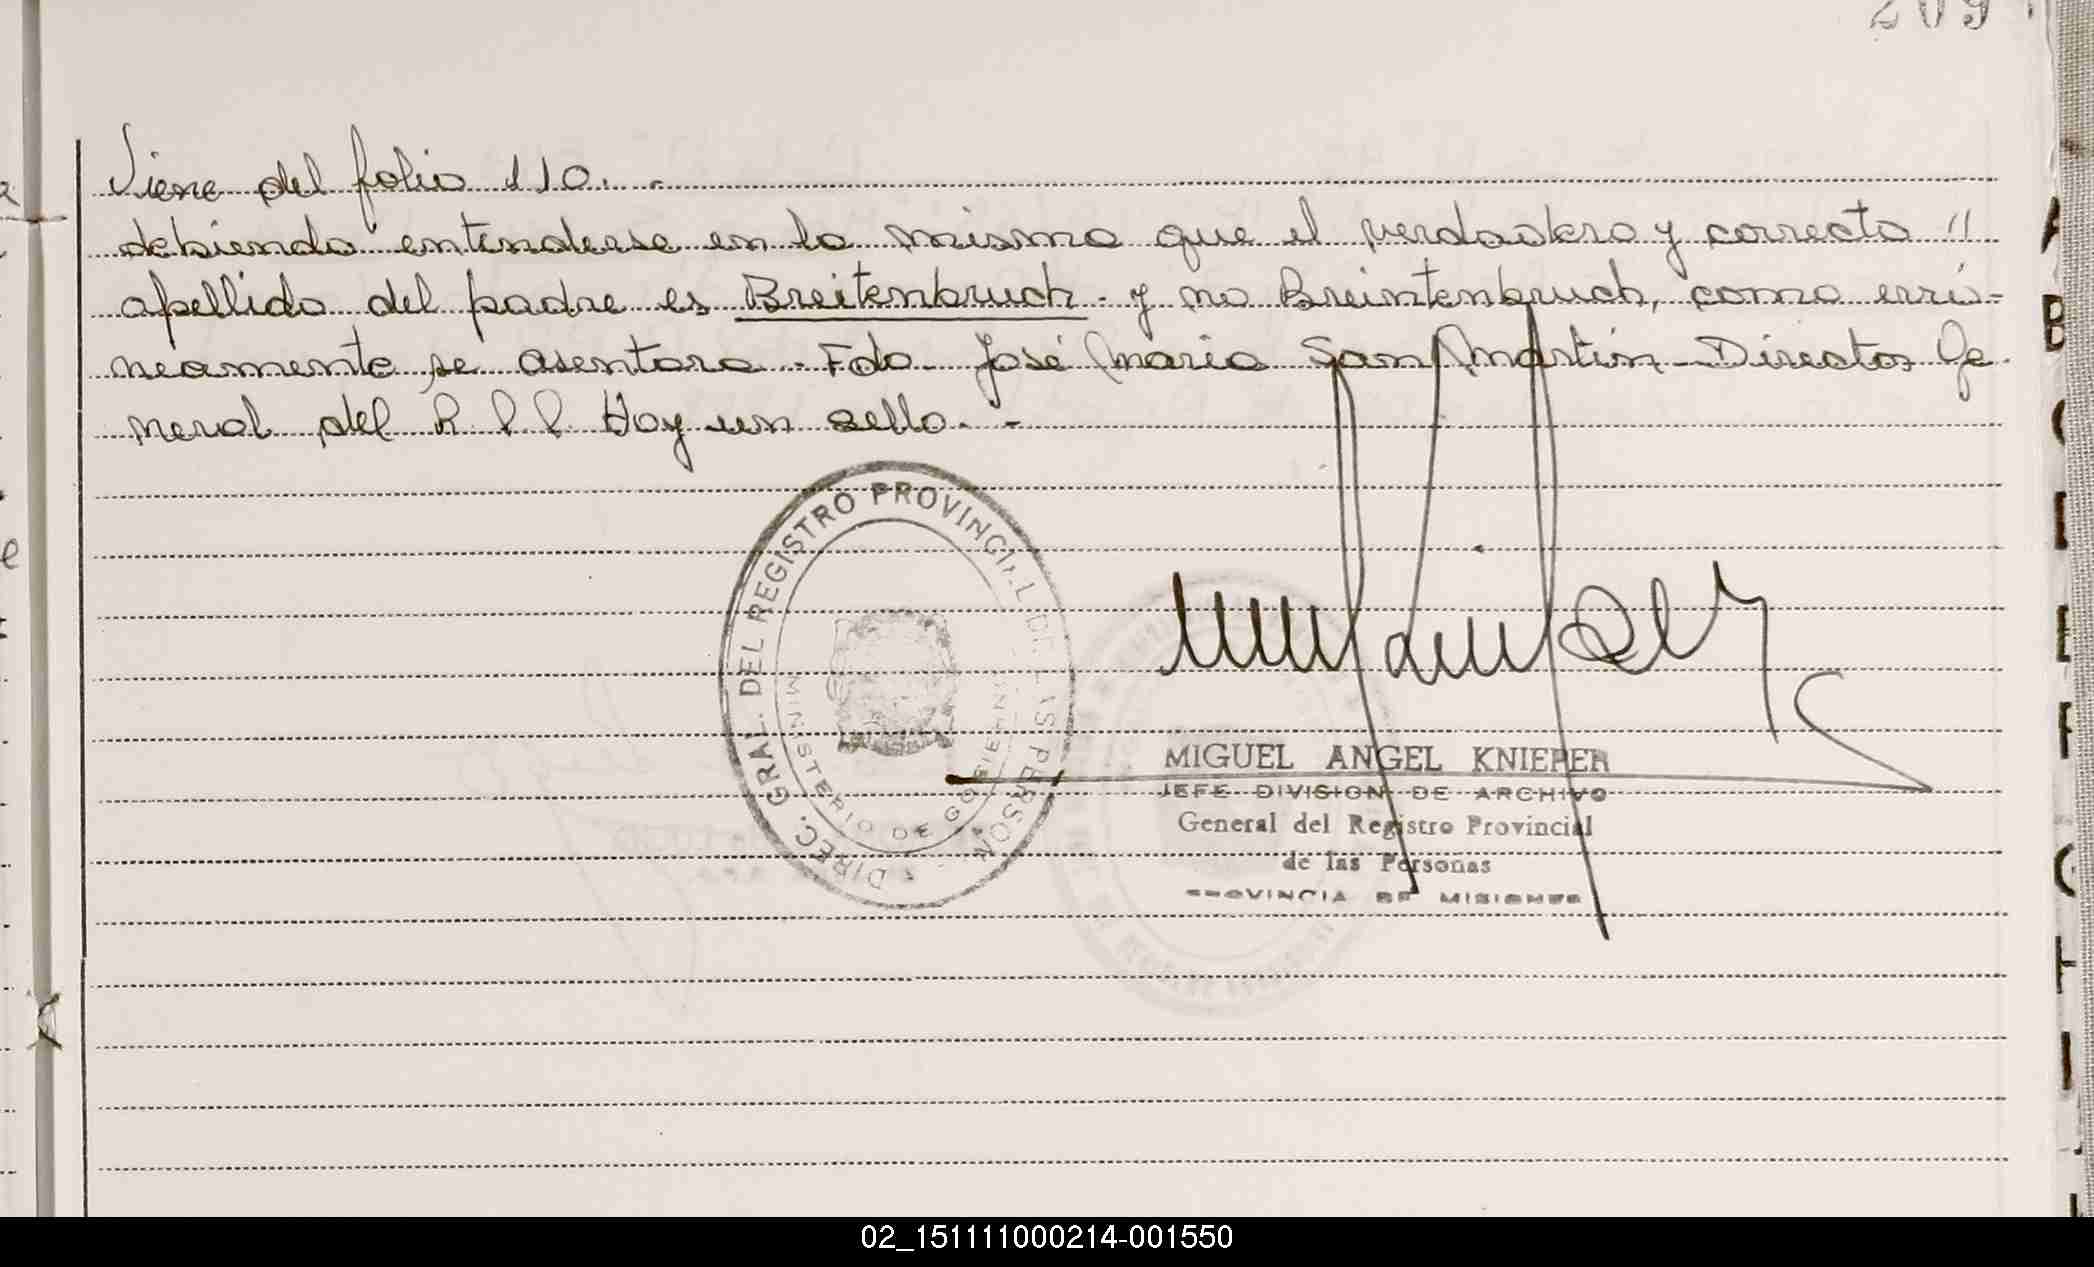 209
Viene del folio 110. -
debiendo entenderse en lo mismo que el verdadero y correcto "
apellido del padre es Breitenbruch - y no Breintenbruch, como erró-
neamente se asentara - Fdo - José Maria San Martin - Director Ge
neral del R P P Hay un sello. -
DIREC. GRAL. DEL REGISTRO PROVINCIAL DE LAS PERSON
MINISTERIO DE GOBIERNO
MIGUEL ANGEL KNIEPER
JEFE DIVISION DE ARCHIVO
General del Registro Provincial
de las Personas
PROVINCIA DE MISIONES
A
B
C
E
F
G
H
I
02_151111000214-001550